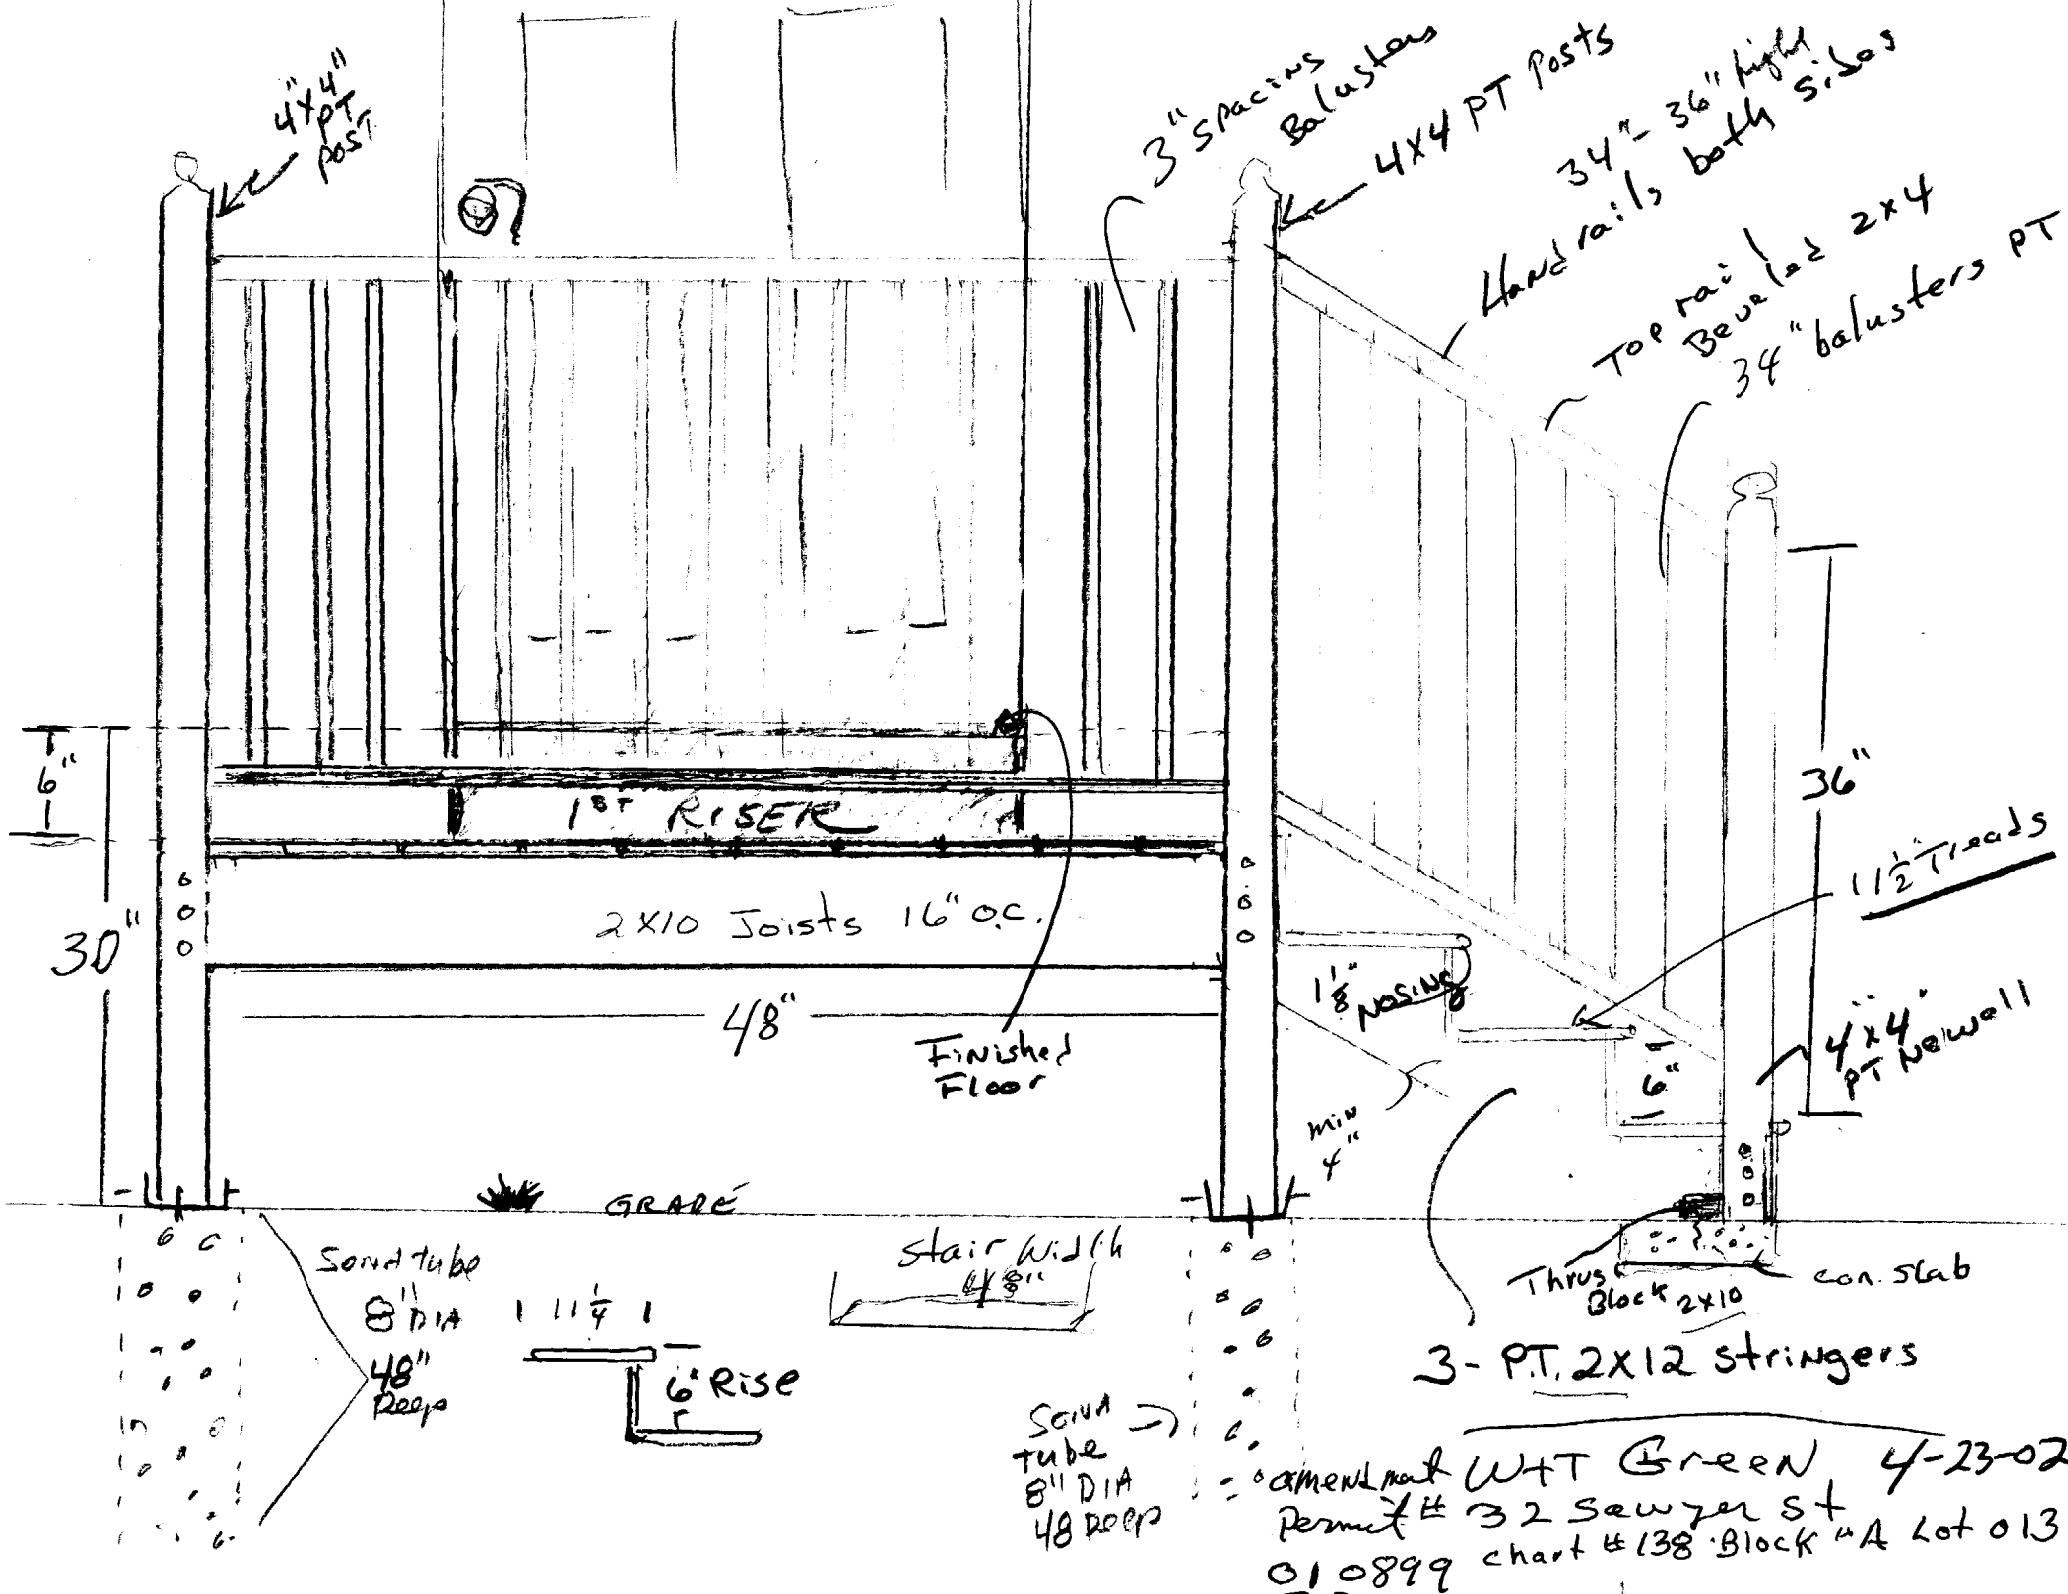 4"x4"
PT
Post
3" spacing
Balusters
4x4 PT Posts
34"- 36" high
Handrails both sides
Top rail
Beveled 2x4
34" balusters PT
6"
30"
1ST RISER
2x10 Joists 16" O.C.
48"
Finished
Floor
1 1/8"
NOSING
11 1/2" Treads
36"
4"x4"
PT Newall
6"
min
4"
GRADE
Sona tube
8" DIA
48"
Deep
11 1/4
6" Rise
Stair Width
48"
Thrust
Block 2x10
con. slab
3- P.T. 2x12 stringers
Sona
tube
8" DIA
48 Deep
amendment W+T Green 4-23-02
Permit # 32 Sawyer St
010899 chart #138 Block "A Lot 013